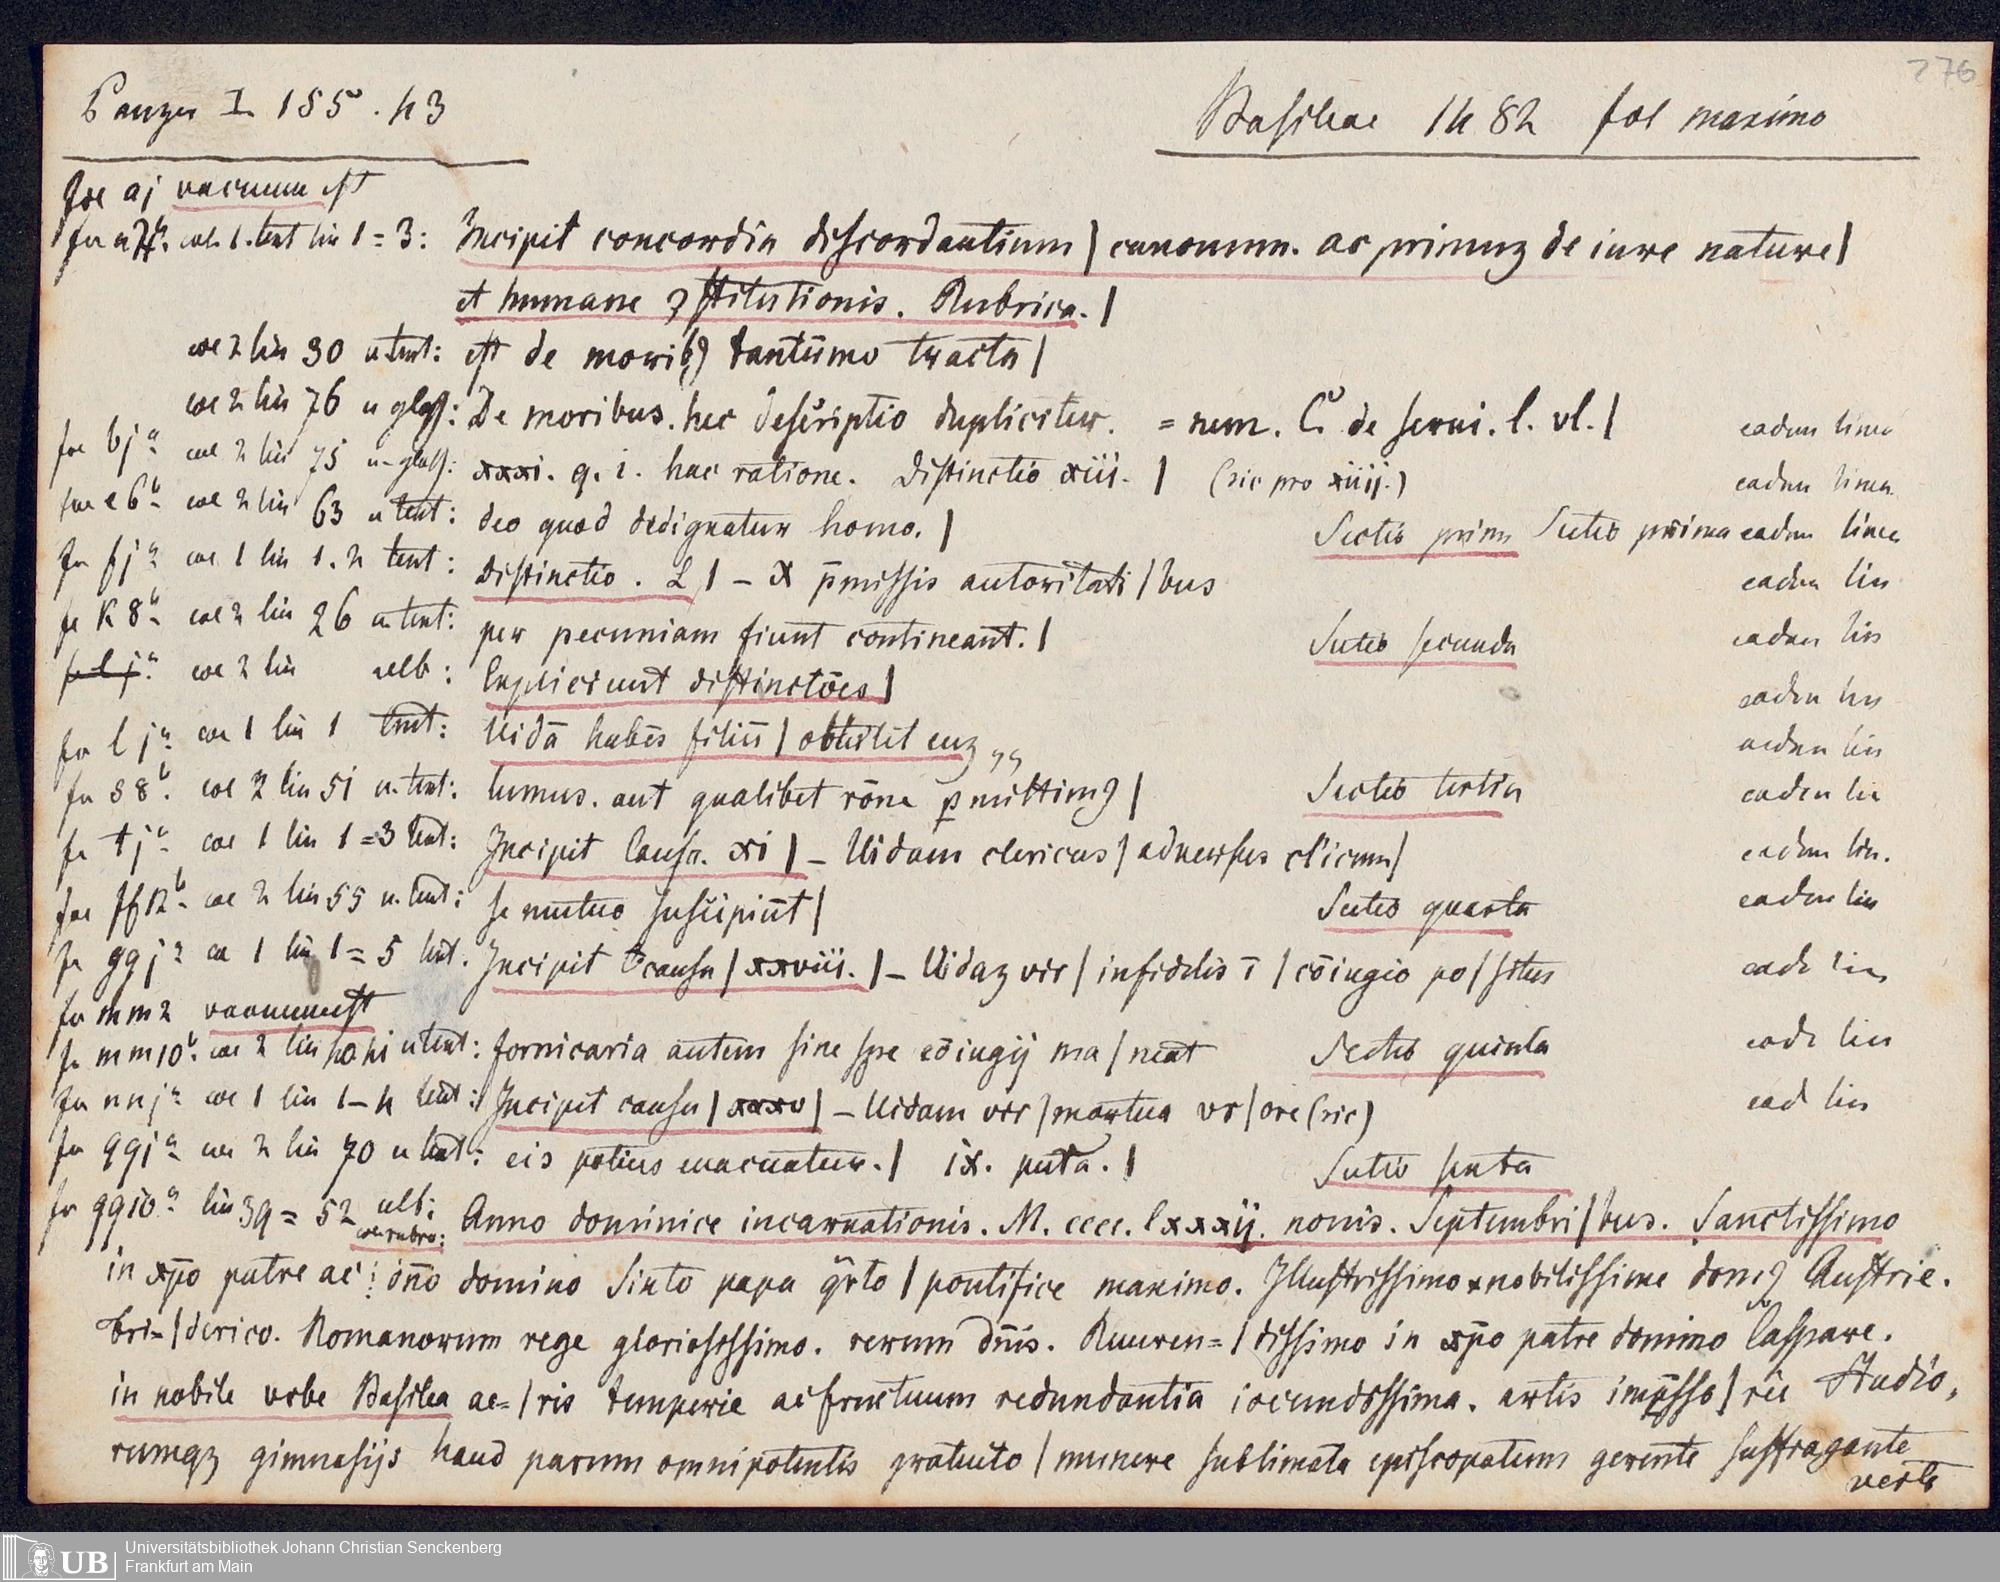 276
Panzer I 155. 43 Basileae 1482 fol maximo
fol aj vacuum est
col. 1. text lin 1=3: Incipit concordia discordantium | canonum. ac primuz de iure nature |
et humane ɔstitutionis. Rubrica. |
col 2 lin 30 u. text: est de moribꝫ tantūmo tracta |
col 2 lin 76 u gloss: De moribus. hec descriptio dupliciter. = nem. C. de serui. l. vl. | eadem linea
fol bj a col 2 lin 75 u. gloss: xxxi. q. i. hac ratione. Distinctio xiii. | (sic pro xiiij.) eadem linea
fol e6 b col 2 lin 63 u text: deo quod dedignatur homo. | Sectio prima Sectio prima eadem linea
fo fj a col 1 lin 1. 2 text: Distinctio. L | – X p̄missis autoritati | bus eadem lin
fo K8 b col 2 lin 26 u. text: per pecuniam fiunt contineant. | Sectio secunda eadem lin
fo l j a col 2 lin alb: Expliciunt distinctōes | eadem lin
fo l j a col 1 lin 1 text: Uidā habēs filiū | obtulit euz „ eadem lin
fo s8 b. col 2 lin 51 u. text: lumus. aut qualibet rōne ꝑmittimꝰ | Sectio tertia eadem lin
fo tj a col 1 lin 1=3 text: Incipit Causa. xi | – Uidam clericus | aduersus cl'icum | eadem lin.
col 2 lin 55 u. text: se mutuo suscipiūt | Sectio quarta eadem lin
fo ggj a co 1 lin 1=5 text. Incipit causa | xxviii. | – Uidaz vir | infidelis ī | cōiugio po | situs eade lin
fo mm2 vacuum est
fo mm10 b. col 2 lin 40 41 u text: fornicaria autem sine spe cōiugij ma | neat Sectio quinta eade lin
fo nnj a col 1 lin 1–4 text: Incipit causa | xxxv | – Uidam vir | mortua vx | ore (sic) ead lin
fo qqj a col 2 lin 70 u text: eis potius euacuatur. | ix. puta. | Sectio sexta
fo qq10 a lin 39=52 alb: col rubro: Anno dominice incarnationis. M. cccc. lxxxij. nonis. Septembri | bus. Sanctissimo
in xp̄o patre ac dn̄o domino Sixto papa q̈rto | pontifice maximo. Illustrissimo nobilissime domꝰ Austrie.
Fri= | derico. Romanorum rege gloriosissimo. rerum dn̄is. Reueren= | dissimo in xp̄o patre domino Caspare.
in nobile vrbe Basilea ae= | ris temperie ac fructuum redundantia iocundissima. artis imp̄sso | rie Studio,
rumqꝫ gimnasijs haud parum omnipotentis gratuito | munere sublimata episcopatum gerente suffragante
verte
UB Universitätsbibliothek Johann Christian Senckenberg
Frankfurt am Main